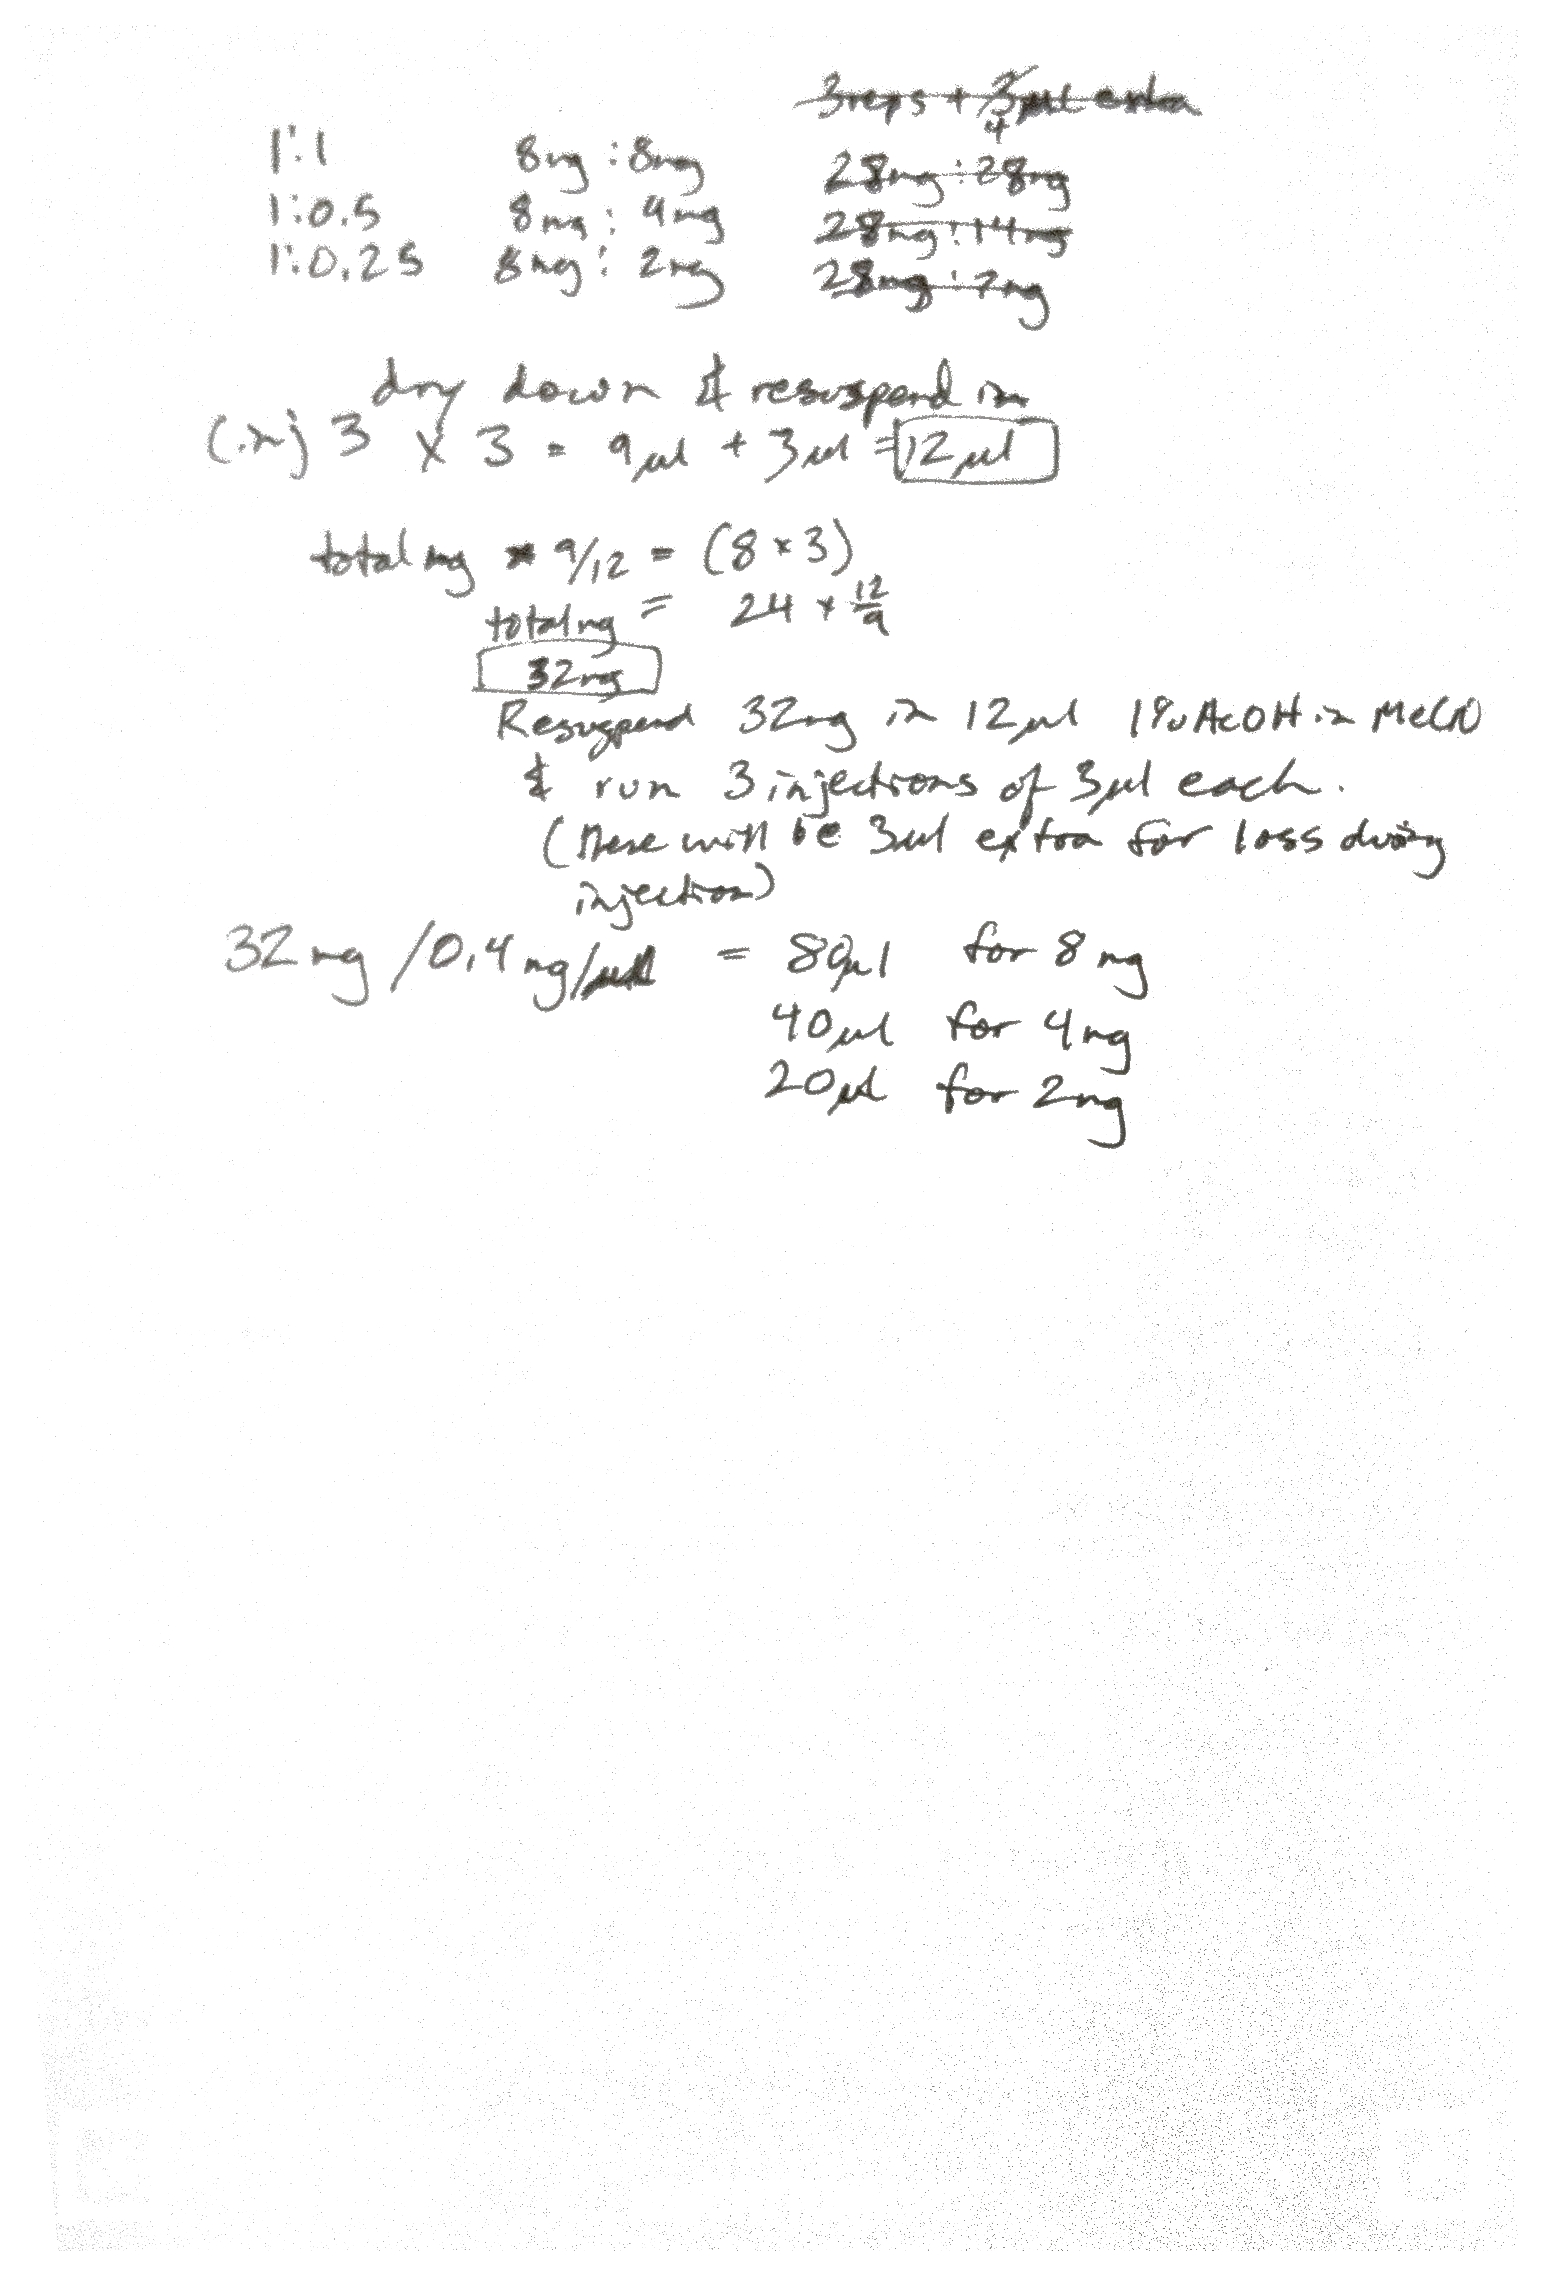 3reps + 3 4 µl extra
1:1 8ng : 8ng 28ng : 28ng
1:0.5 8ng : 4ng 28ng : 14ng
1:0.25 8ng : 2ng 28ng : 7ng
dry down & resuspend in
(inj 3 x 3 = 9µl + 3µl = 12µl
total ng * 9/12 = (8 x 3)
total ng = 24 x 12/9
32ng
Resuspend 32ng in 12µl 1% AcOH in MeCN
& run 3 injections of 3µl each.
(there will be 3µl extra for loss during
injection)
32ng /0.4 ng/µl = 80µl for 8 ng
40µl for 4ng
20µl for 2ng